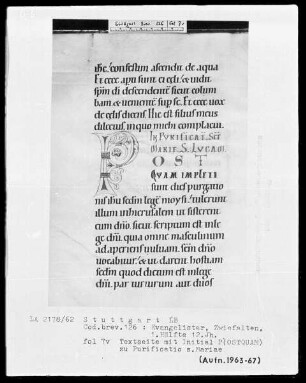 Stuttgart Brev. 126 fol 7v
ihc. confestim ascendit de aqua
Et ecce apti sunt ei celi. & vidit
spm di descendentē sicut colum
bam & venientē sup se. Et ecce vox
de celis dicens. Hic est filius meus
dilectus in quo michi complacui.
IN PURIFICAT. SCE
MARIE. S. LUCAM.
P OST
QUAM IMPLETI
sunt dies purgatio
nis ihu scdm legē moysi. tulerunt
illum in hierusalem ut sisterent
eum dño. sicut scriptum est in lege
dñi. quia omne masculinum
ad aperiens uuluam. scm dño
uocabitur. & ut darent hostiam
scdm quod dictum est in lege
dñi. par turturum aut duos
LA 2178/62 Stuttgart LB
Cod.brev.126 : Evangelistar, Zwiefalten,
1.Hälfte 12.Jh.
fol 7v Textseite mit Initial P(OSTQUAM)
zu Purificatio s.Mariae
(Aufn.1963-67)